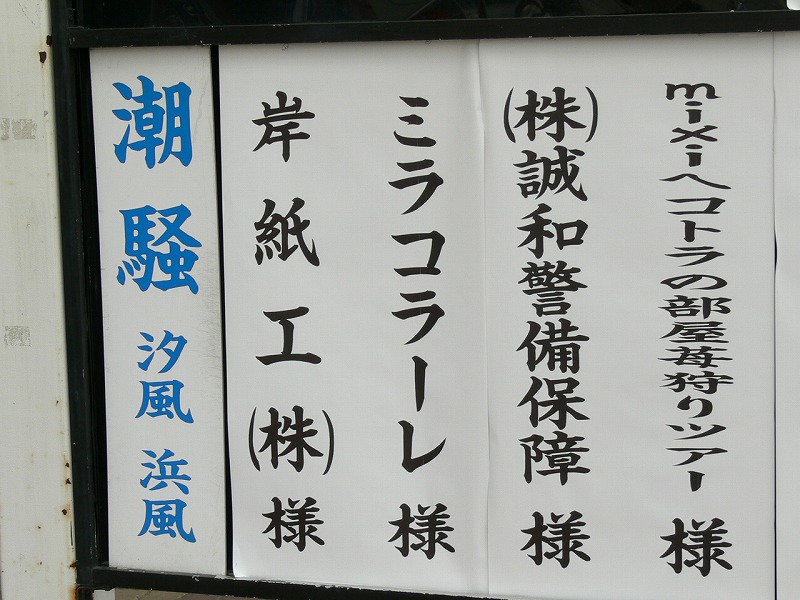 mixiヘコトラの部屋苺狩りツアー 様
(株)誠和警備保障 様
ミラコラーレ 様
岸紙工(株) 様
潮騒 汐風 浜風